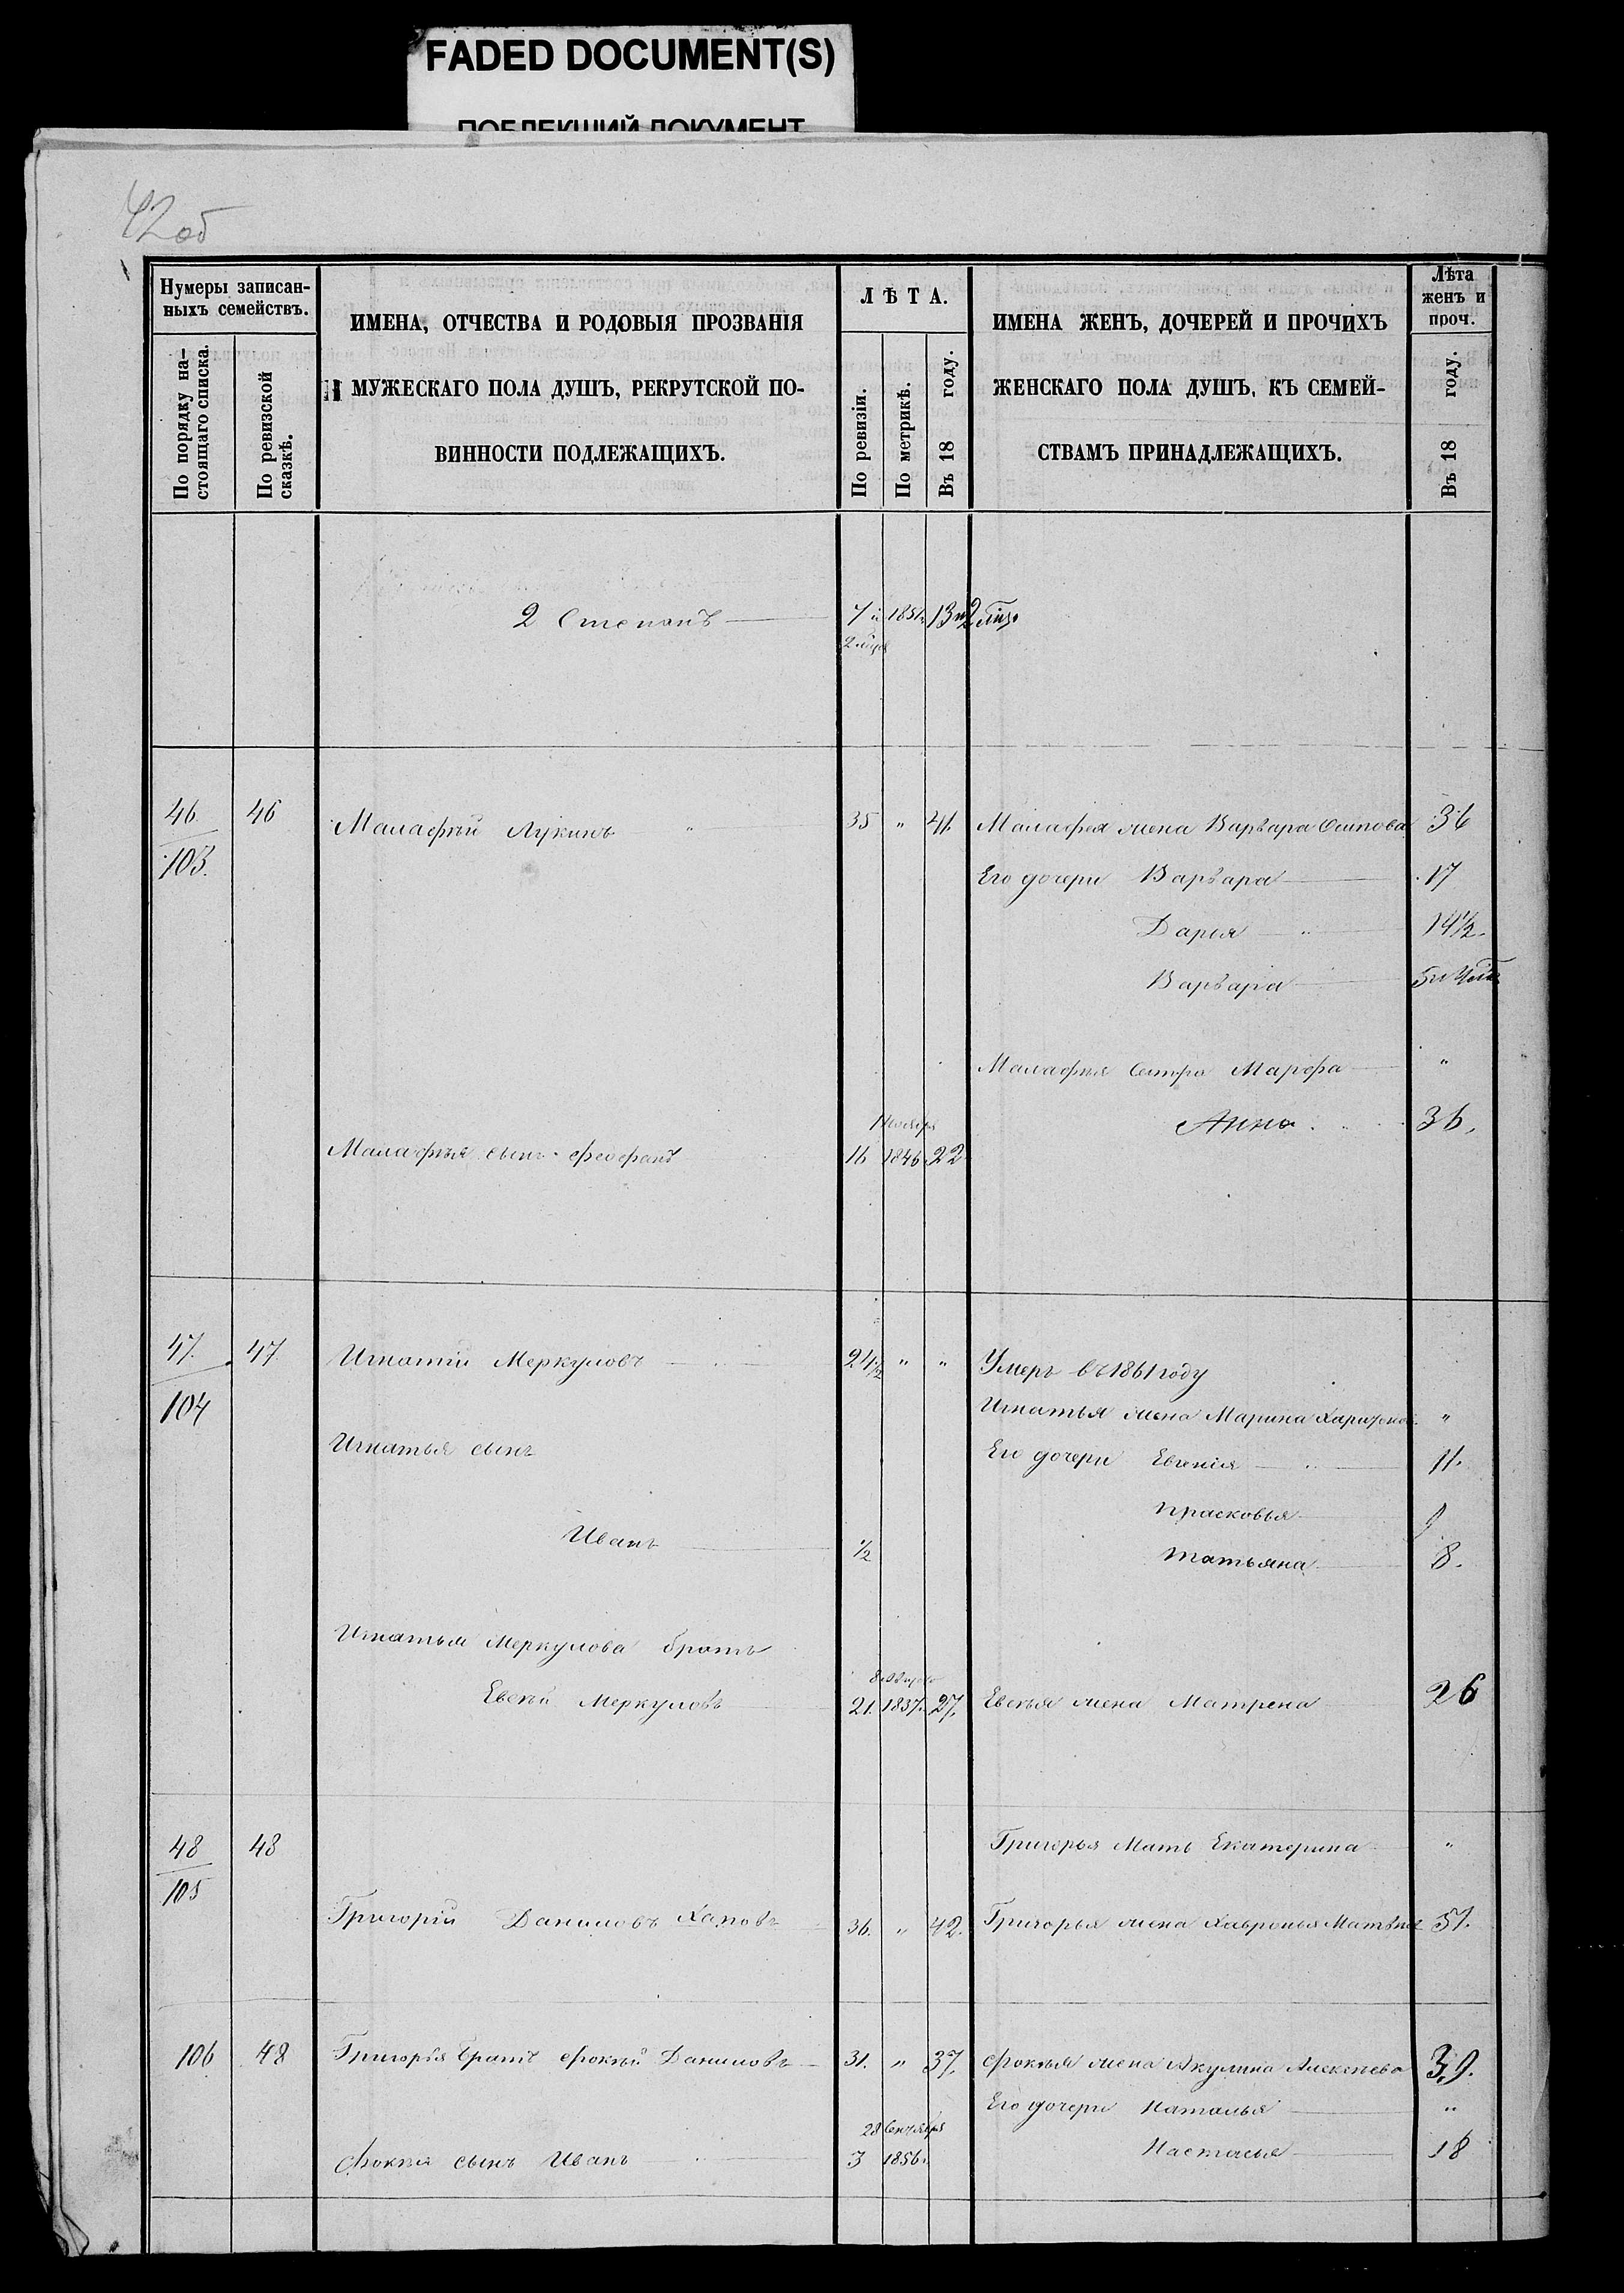 FADED DOCUMENT(S)
ПОБЛЕКШИЙ ДОКУМЕНТ
42 об
Нумеры записан-
ныхъ семействъ.
По порядку на-
стоящаго списка.
По ревизской
сказкѣ.
ИМЕНА, ОТЧЕСТВА И РОДОВЫЯ ПРОЗВАНІЯ
МУЖЕСКАГО ПОЛА ДУШЪ, РЕКРУТСКОЙ ПО-
ВИННОСТИ ПОДЛЕЖАЩИХЪ.
ЛѢТА.
По ревизіи.
По метрикѣ.
Въ 18 году.
ИМЕНА ЖЕНЪ, ДОЧЕРЕЙ И ПРОЧИХЪ
ЖЕНСКАГО ПОЛА ДУШЪ, КЪ СЕМЕЙ-
СТВАМЪ ПРИНАДЛЕЖАЩИХЪ.
Лѣта
женъ и
проч.
Въ 18 году.
2 Степанъ 7 и 1851 13 и 2
46. 46 Малафѣй Лукинъ " 35 " 41. Малафея жена Варвара Осипова 36
103. Его дочери Варвара 17
Дарья " 14 1/2.
Варвара 5 и
Малафея Сестра Марфа "
Анна 36.
Ноября
Малафѣя сынъ Феофанъ 16 1846 22
47. 47 Игнатій Меркуловъ 24 1/2 " " Умеръ въ 1861 году
104 Игнатья жена Марина "
Игнатья сынъ Его дочери Евгенія 11.
Прасковья 9
Иванъ 1/2 Татьяна 8.
Игнатья Меркулова братъ
Евсѣй Меркуловъ 21. 1837. 27. Евсѣя жена Матрена 26
48 48 Григорья Мать Екатерина "
105
Григорій Даниловъ Хаповъ 36. " 42. Григорья жена Хавронья 51.
106 48 Григорія братъ Фокѣй Даниловъ 31. " 37. Фокѣя жена Акулина Алексѣева 39.
Его дочери Наталья "
28 Сентября
Фокѣя сынъ Иванъ 3 1856. Настасья 18